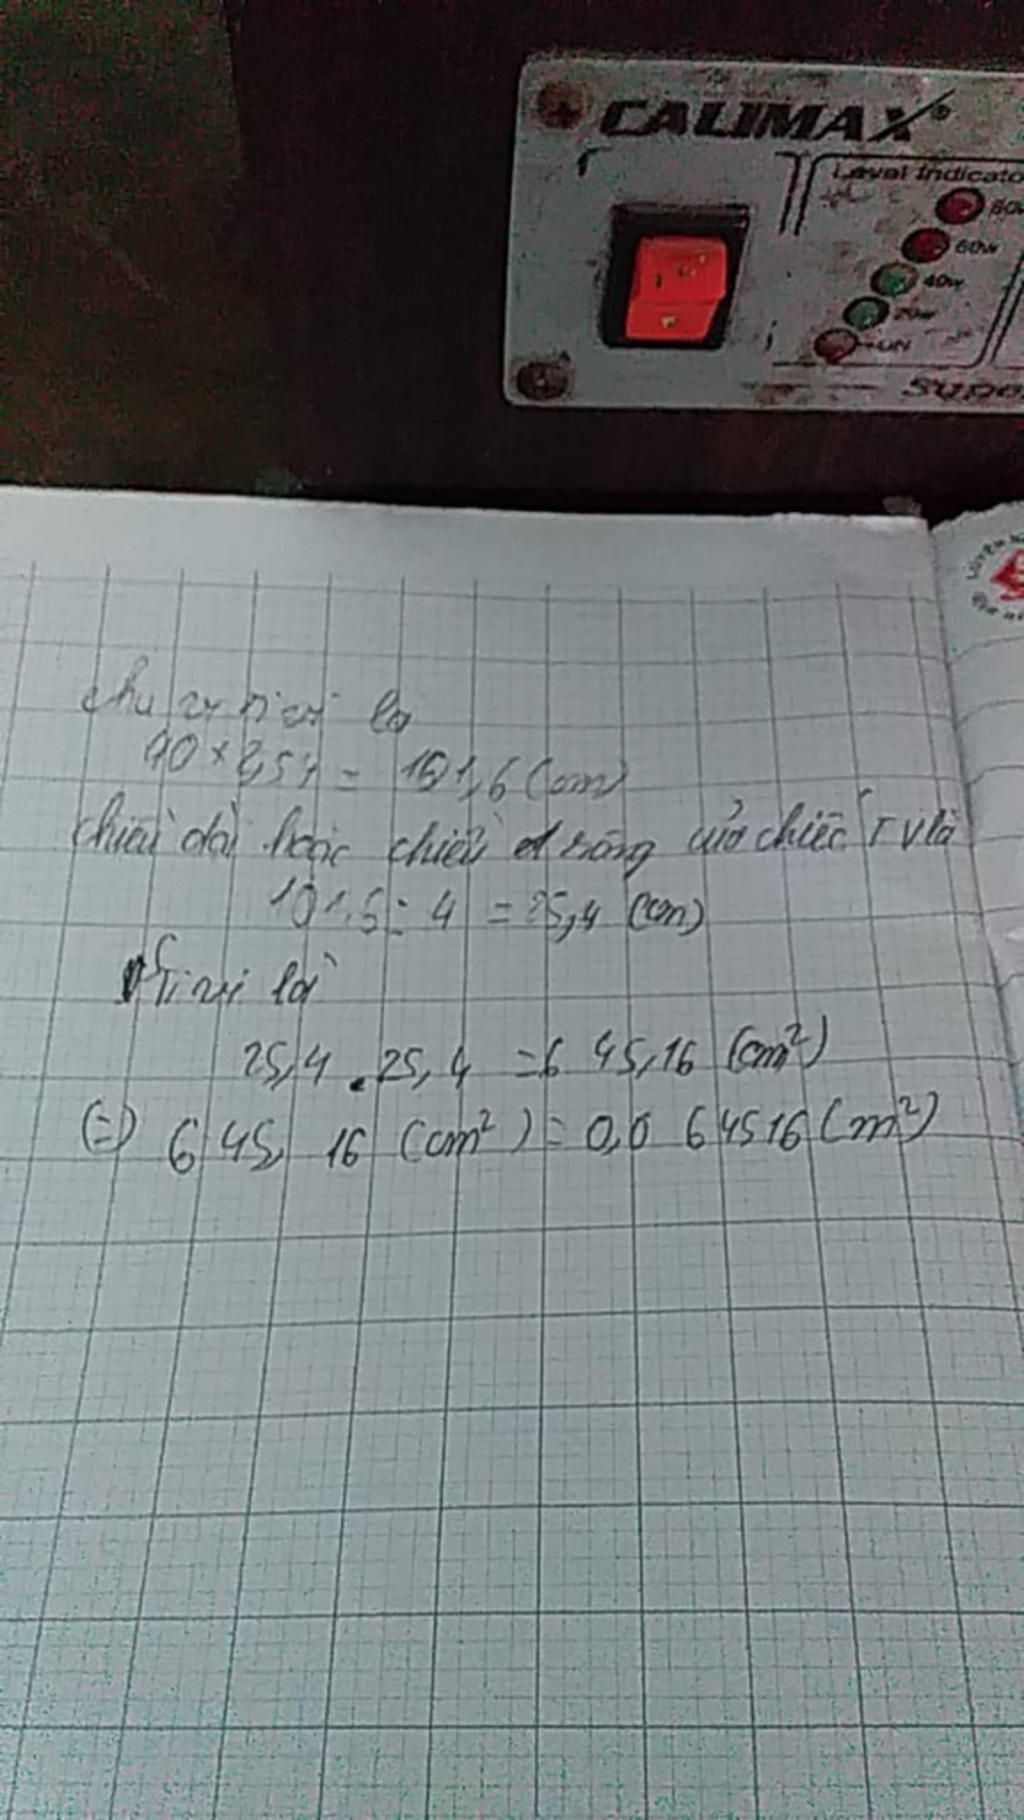 CALIMAX®
Level Indicato
60w
40w
20w
ON
Supe
Chu vi ti vi là
40 × 2,54 = 101,6 (cm)
chiều dài hoặc chiều rông của chiếc TV là
101,6 : 4 = 25,4 (cm)
Ti vi là
25,4 . 25,4 = 645,16 (cm²)
(=) 645,16 (cm²) = 0,064516 (m²)